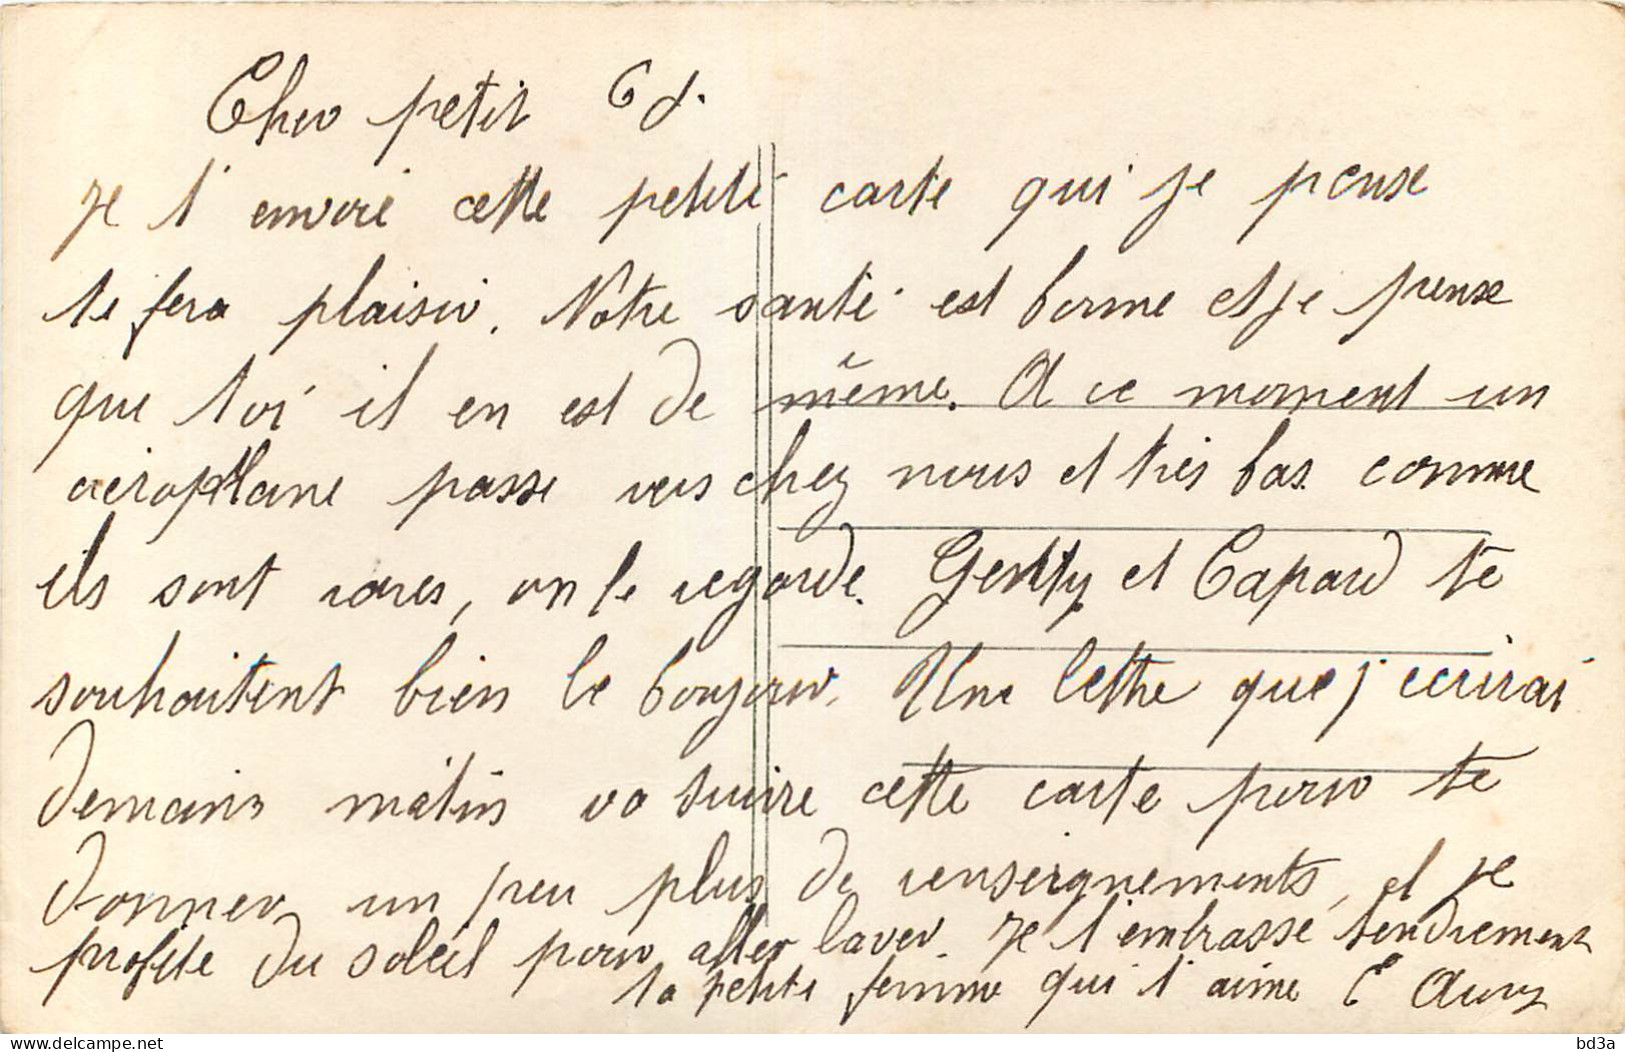 Cher petit Ed.
Je t'envoie cette petite carte qui je pense
te fera plaisir. Notre santé est bonne et je pense
que toi il en est de même. A ce moment un
aéroplane passe vers chez nous et très bas. comme
ils sont rares, on le regarde. Gentty et Capard te
souhaitent bien le bonjour. Une lettre que j'ecrirai
demain matin va suivre cette carte pour te
donner un peu plus de renseignements, et je
profite du soleil pour aller laver. Je t'embrasse tendrement
ta petite femme qui t'aime E
delcampe.net
bd3a